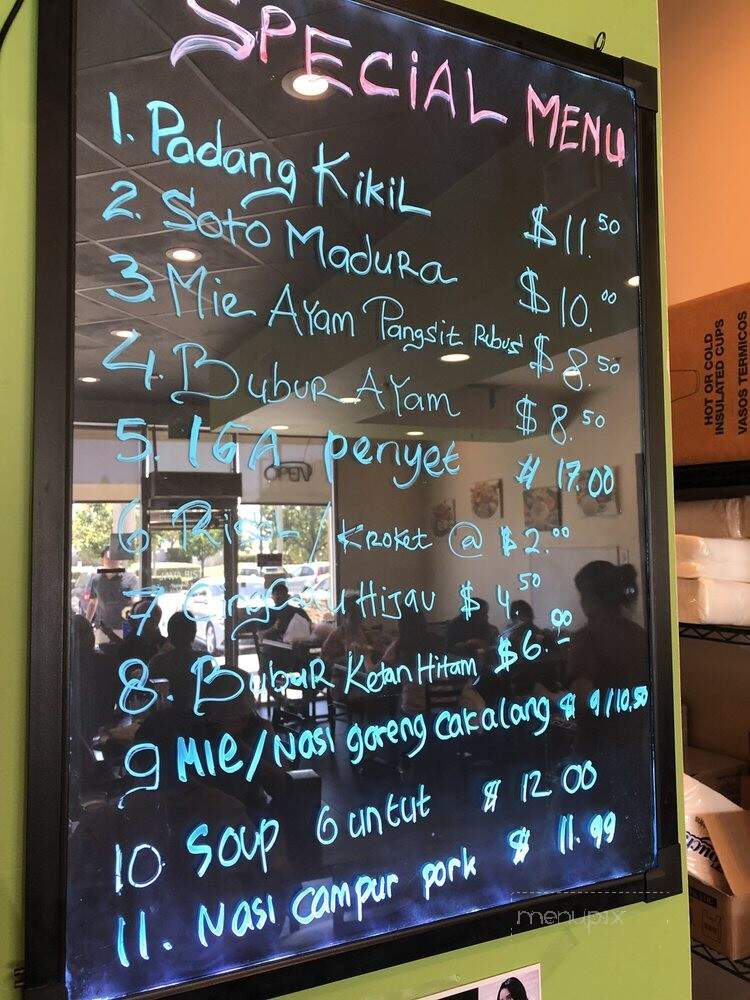 SPECiAL MENU
1. Padang KikiL $ 11.50
2. Soto MaduRa $ 10.00
3. Mie AYam Pangsit Rebus $ 8.50
4. Bubur AYam $ 8.50
5. IGA penyet $ 17.00
6. RisoL / KRoket @ $ 2.00
7 Hijau $ 4.50
8. BubuR Ketan Hitam $ 6.00
9 MIe/Nasi goreng cakalang $ 9/10.50
10 Soup Guntut $ 12 00
11. Nasi campur pork $ 11.99
OPEN
HOT OR COLD
INSULATED CUPS
VASOS TERMICOS
menupix